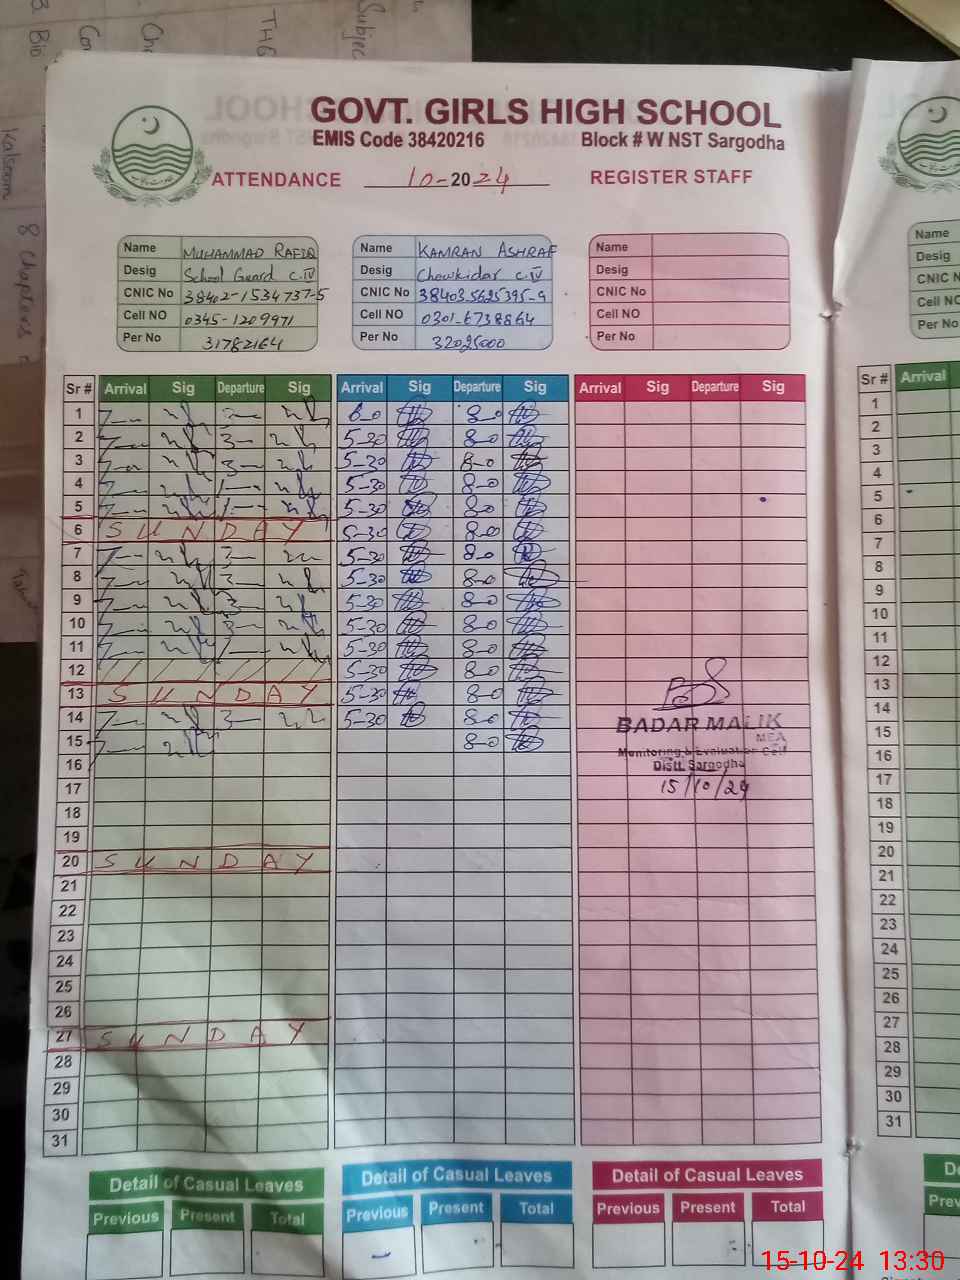 Subjec
THE
Ch
Co
3 Bio
Kalsoom
8 Chapters
GOVT. GIRLS HIGH SCHOOL
EMIS Code 38420216 Block # W NST Sargodha
ATTENDANCE 10-2024 REGISTER STAFF
Name MUHAMMAD RAFIQ Name KAMRAN ASHRAF Name
Desig School Guard C.IV Desig Chowkidar C.IV Desig
CNIC No 38402-1534737-5 CNIC No 384035625395-9 CNIC No
Cell NO 0345-1209971 Cell NO 0301-6738864 Cell NO
Per No 31782164 Per No 32025000 Per No
Name
Desig
CNIC N
Cell NO
Per No
Sr # Arrival Sig Departure Sig Arrival Sig Departure Sig Arrival Sig Departure Sig Sr # Arrival
1 7— 3— 6-0 8-0 1
2 7— 3— 5-30 8-0 2
3 7— 3— 5-30 8-0 3
4 7— 1— 5-30 8-0 4
5 7— 1— 5-30 8-0 5
6 SUNDAY 5-30 8-0 6
7 7— 3— 5-30 8-0 7
8 7— 3— 5-30 8-0 8
9 7— 3— 5-30 8-0 9
10 7— 3— 5-30 8-0 10
11 7— 1— 5-30 8-0 11
12 5-30 8-0 12
13 SUNDAY 5-30 8-0 13
14 7— 3— 5-30 8-0 14
15 7— 8-0 15
BADAR MALIK
MEA
Monitoring & Evaluation Cell
Distt. Sargodha
15/10/24
16 16
17 17
18 18
19 19
20 SUNDAY 20
21 21
22 22
23 23
24 24
25 25
26 26
27 SUNDAY 27
28 28
29 29
30 30
31 31
Detail of Casual Leaves Detail of Casual Leaves Detail of Casual Leaves D
Previous Present Total Previous Present Total Previous Present Total Prev
15-10-24 13:30